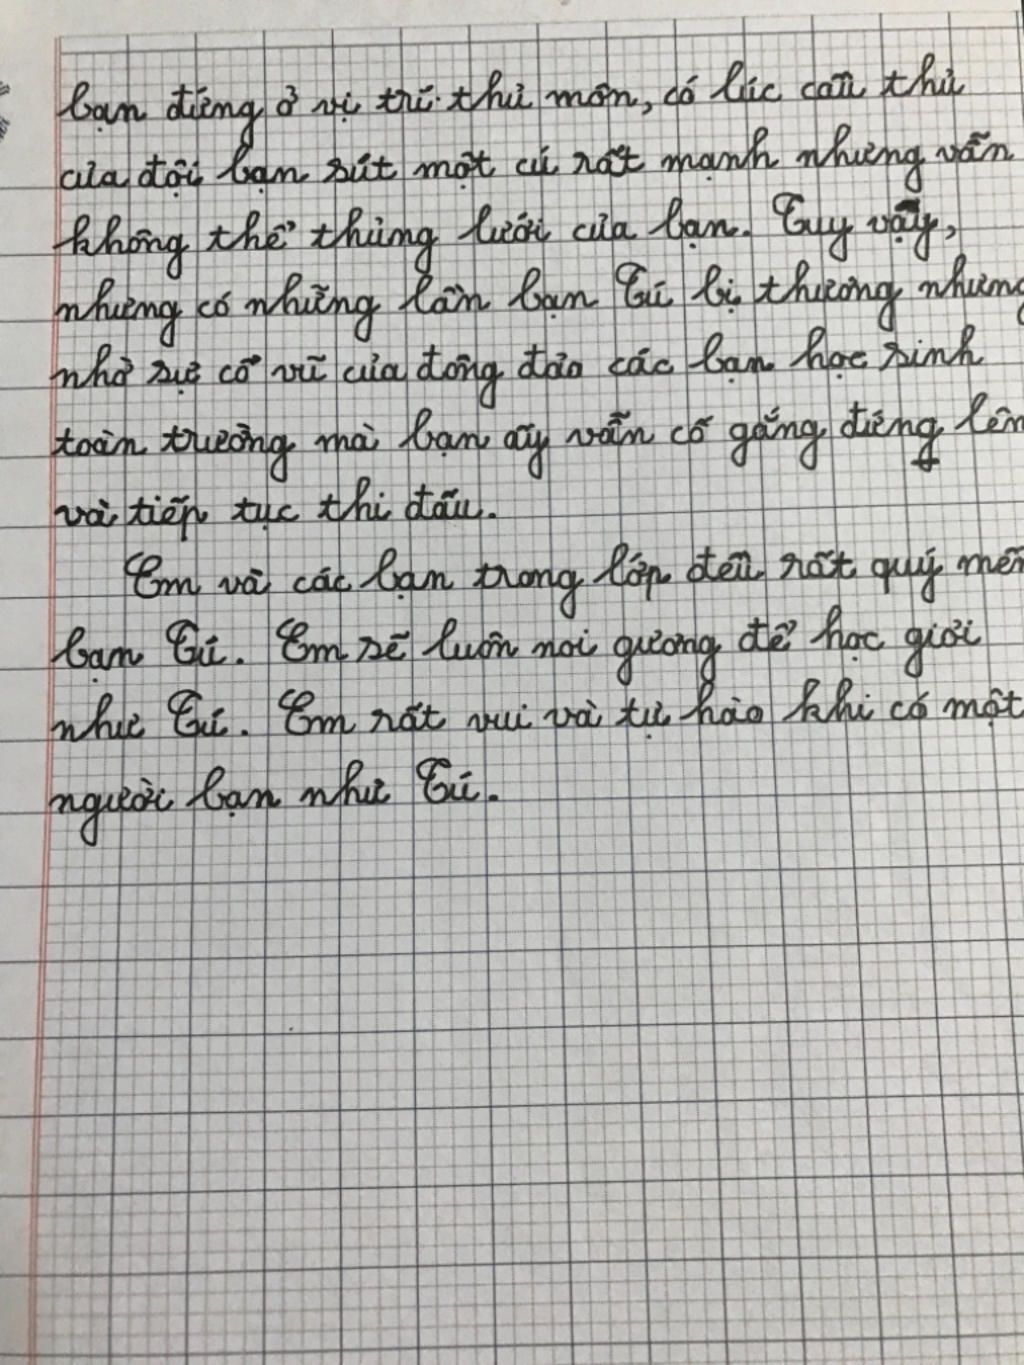 bạn đứng ở vị trí thủ môn, có lúc cầu thủ
của đội bạn sút một cú rất mạnh nhưng vẫn
không thể thủng lưới của bạn. Tuy vậy,
nhưng có những lần bạn Tú bị thương nhưng
nhờ sự cổ vũ của đông đảo các bạn học sinh
toàn trường mà bạn ấy vẫn cố gắng đứng lên
và tiếp tục thi đấu.
Em và các bạn trong lớp đều rất quý mến
bạn Tú. Em sẽ luôn noi gương để học giỏi
như Tú. Em rất vui và tự hào khi có một
người bạn như Tú.